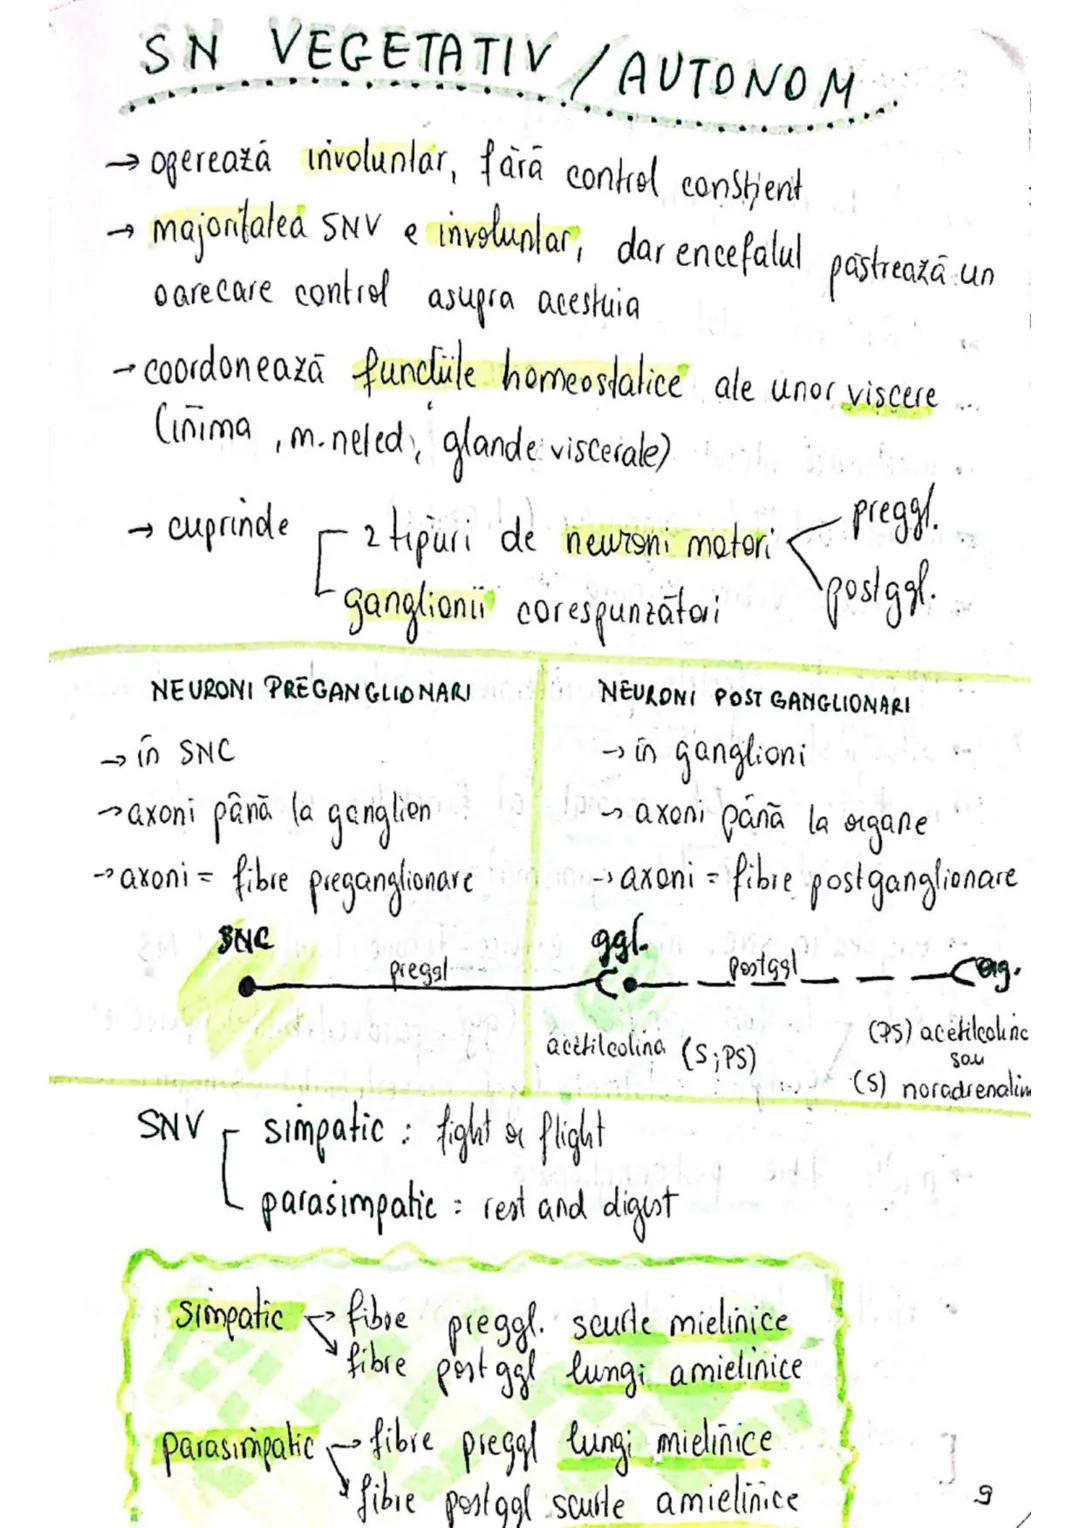 SN VEGETATIV / AUTONOM
→ operează involuntar, fără control conștient
→ majoritatea SNV e involuntar, dar encefalul păstrează un
oarecare control asupra acestuia
→ coordonează funcțiile homeostatice ale unor viscere
(inima, m. neted, glande viscerale)
→ cuprinde 2 tipuri de neuroni motori preggl.
postggl.
ganglionii corespunzători
NEURONI PREGANGLIONARI
→ în SNC
→ axoni până la ganglion
→ axoni = fibre preganglionare
NEURONI POSTGANGLIONARI
→ în ganglioni
→ axoni până la organe
→ axoni = fibre postganglionare
SNC preggl ggl. postggl org.
acetilcolina (S;PS)
(PS) acetilcolina
sau
(S) noradrenalin
SNV simpatic : fight or flight
parasimpatic : rest and digest
simpatic → fibre preggl. scurte mielinice
→ fibre postggl lungi amielinice
parasimpatic → fibre preggl lungi mielinice
→ fibre postggl scurte amielinice
9